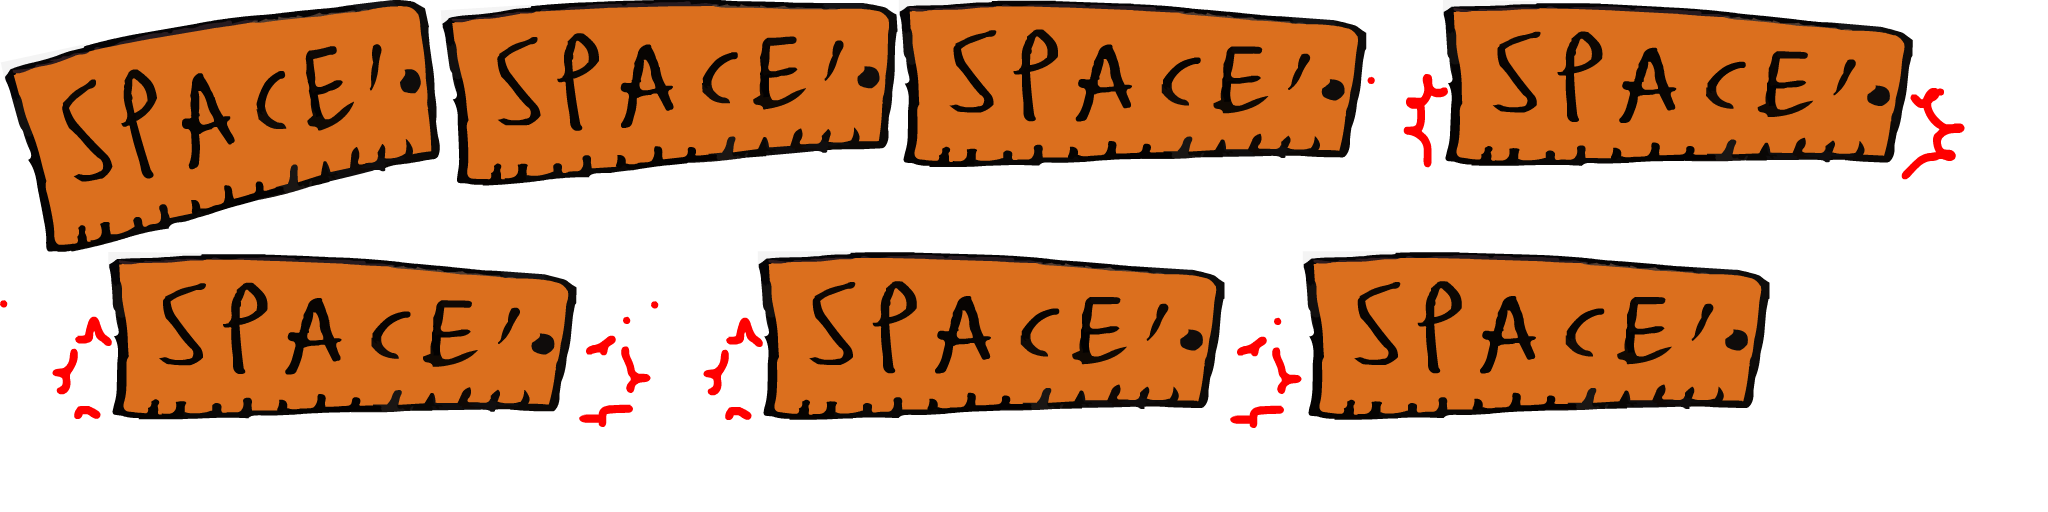 SPACE! SPACE! SPACE! SPACE!
SPACE! SPACE! SPACE!